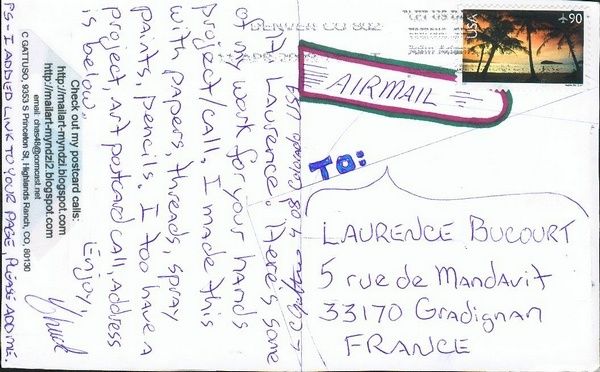 USA 90
DENVER CO 802
AIRMAIL
TO:
LAURENCE BUCOURT
5 rue de Mandavit
33170 Gradignan
FRANCE
Hi Laurence. Here's some
of my work for your hands
project/call. I made this
with papers, threads, spray
paints, pencils. I too have a
project, art postcard call, address
is below.
Enjoy,
Chuck
Check out my postcard calls:
http://mailart-myndzi.blogspot.com
http://mailart-myndzi2.blogspot.com
C GATTUSO, 9353 S Princeton St, Highlands Ranch, CO, 80130
email: chas48@comcast.net
PS - I ADDED LINK TO YOUR PAGE, PLEASE ADD ME.